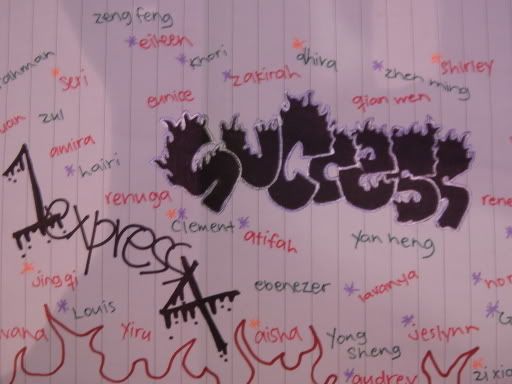 zeng feng
eileen
khori
dhira
shirley
seri
zakirah
zhen ming
eunice
qian wen
zul
success
amira
hairi
renuga
clement
atifah
yan heng
1 express 4
jing qi
ebenezer
lavanya
Louis
yiru
aisha
Yong
sheng
jeslynn
audrey